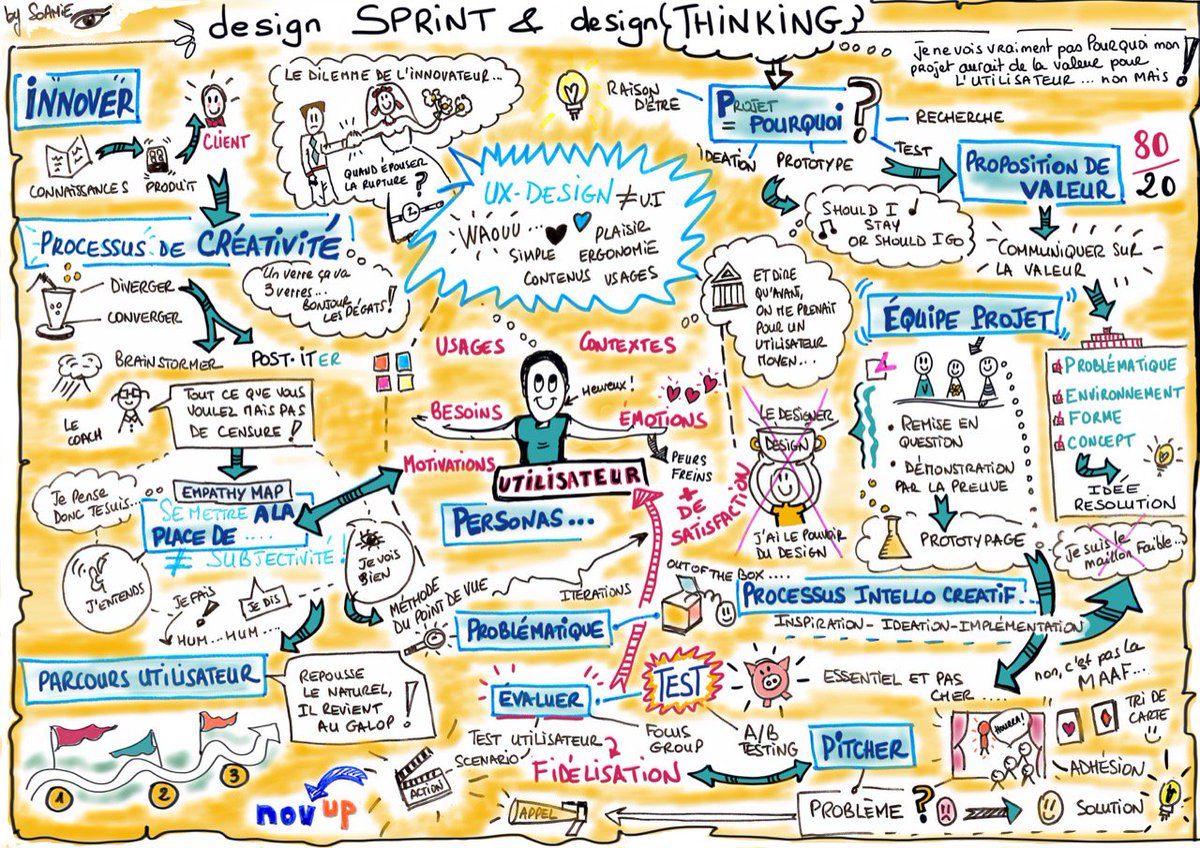 by SoAMiE
design SPRINT & design {THINKING}
Je ne vois vraiment pas POURQUOI mon
projet aurait de la valeur pour
L'UTILISATEUR ... non MAIS !
INNOVER
CLIENT
CONNAISSANCES
PRODUIT
LE DILEMME DE L'INNOVATEUR...
QUAND ÉPOUSER
LA RUPTURE ?
RAISON
D'ÊTRE
PROJET
= POURQUOI ?
RECHERCHE
IDEATION
PROTOTYPE
TEST
PROPOSITION DE
VALEUR
80
20
UX-DESIGN ≠ UI
WAOUU ...
PLAISIR
SIMPLE
ERGONOMIE
CONTENUS USAGES
SHOULD I
STAY
OR SHOULD I GO
COMMUNIQUER SUR
LA VALEUR
PROCESSUS DE CRÉATIVITÉ
DIVERGER
CONVERGER
Un verre ça va
3 verres...
BONJOUR
LES DÉGATS !
BRAINSTORMER
POST-ITER
LE
COACH
TOUT CE QUE VOUS
VOULEZ MAIS PAS
DE CENSURE !
USAGES
CONTEXTES
Heureux !
BESOINS
ÉMOTIONS
MOTIVATIONS
PEURS
FREINS
UTILISATEUR
+ DE
SATISFACTION
PERSONAS...
ET DIRE
QU'AVANT,
ON ME PRENAIT
POUR UN
UTILISATEUR
MOYEN...
LE DESIGNER
DESIGN
J'AI LE POUVOIR
DU DESIGN
ÉQUIPE PROJET
• REMISE EN
QUESTION
• DÉMONSTRATION
PAR LA PREUVE
PROTOTYPAGE
PROBLÉMATIQUE
ENVIRONNEMENT
FORME
CONCEPT
IDÉE
RESOLUTION
Je suis le
maillon faible...
EMPATHY MAP
SE METTRE A LA
PLACE DE ....
≠ SUBJECTIVITÉ !
Je pense
donc je suis...
J'ENTENDS
JE FAIS
!
JE DIS
HUM... HUM....
JE VOIS
BIEN
MÉTHODE
DU POINT DE VUE
ITÉRATIONS
PROBLÉMATIQUE
OUT OF THE BOX ....
PROCESSUS INTELLO CREATIF..!
INSPIRATION - IDEATION - IMPLÉMENTATION
PARCOURS UTILISATEUR
REPOUSSE
LE NATUREL,
IL REVIENT
AU GALOP !
1
2
3
nov up
ACTION
ÉVALUER
TEST
TEST UTILISATEUR
SCENARIO
FOCUS
GROUP
A/B
TESTING
FIDÉLISATION
ESSENTIEL ET PAS
CHER .....
non, c'est pas la
MAAF...
PITCHER
HOURRA !
TRI DE
CARTE
ADHÉSION
PROBLÈME ?
SOLUTION
APPEL